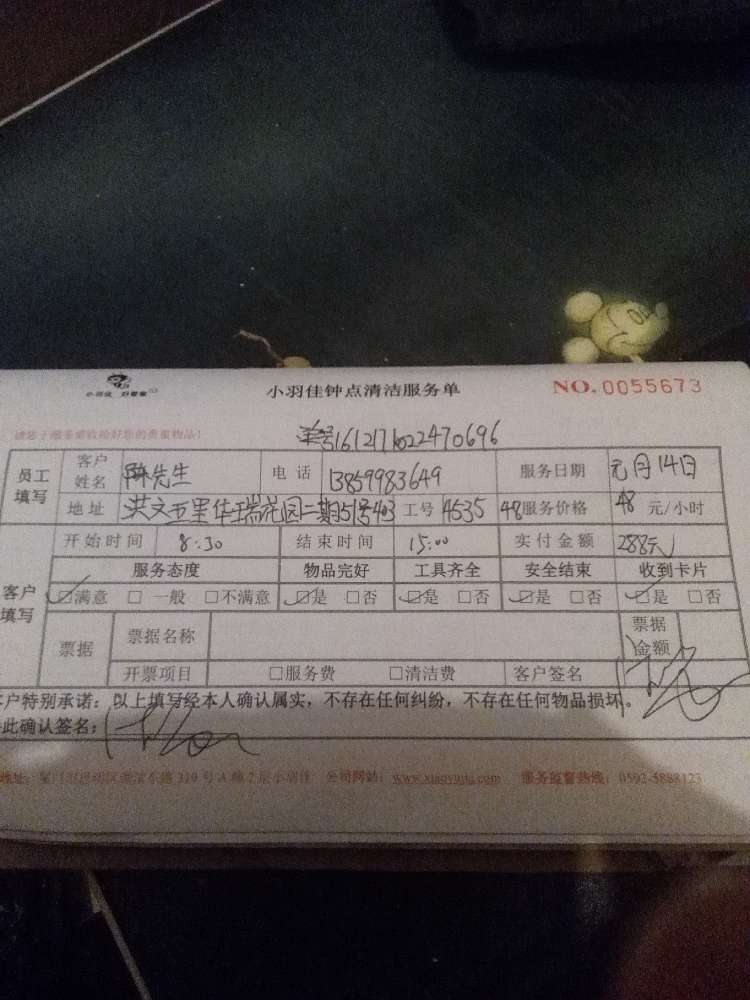 小羽佳 好管家
小羽佳钟点清洁服务单 NO.0055673
单号161217102247069 6
员工填写 客户姓名 陈先生 电话 13859983649 服务日期 元月14日
地址 洪文五里华瑞花园二期51号403 工号 4535 48 服务价格 48 元/小时
开始时间 8:30 结束时间 15:00 实付金额 288元
客户填写 服务态度 物品完好 工具齐全 安全结束 收到卡片
☑满意 □一般 □不满意 ☑是 □否 ☑是 □否 ☑是 □否 ☑是 □否
票据 票据名称 票据金额
开票项目 □服务费 □清洁费 客户签名
客户特别承诺：以上填写经本人确认属实，不存在任何纠纷，不存在任何物品损坏。
此确认签名：
地址： 319号A幢2层小羽佳 公司网站：www.xiaoyujia.com 服务监督热线：0592-5888123